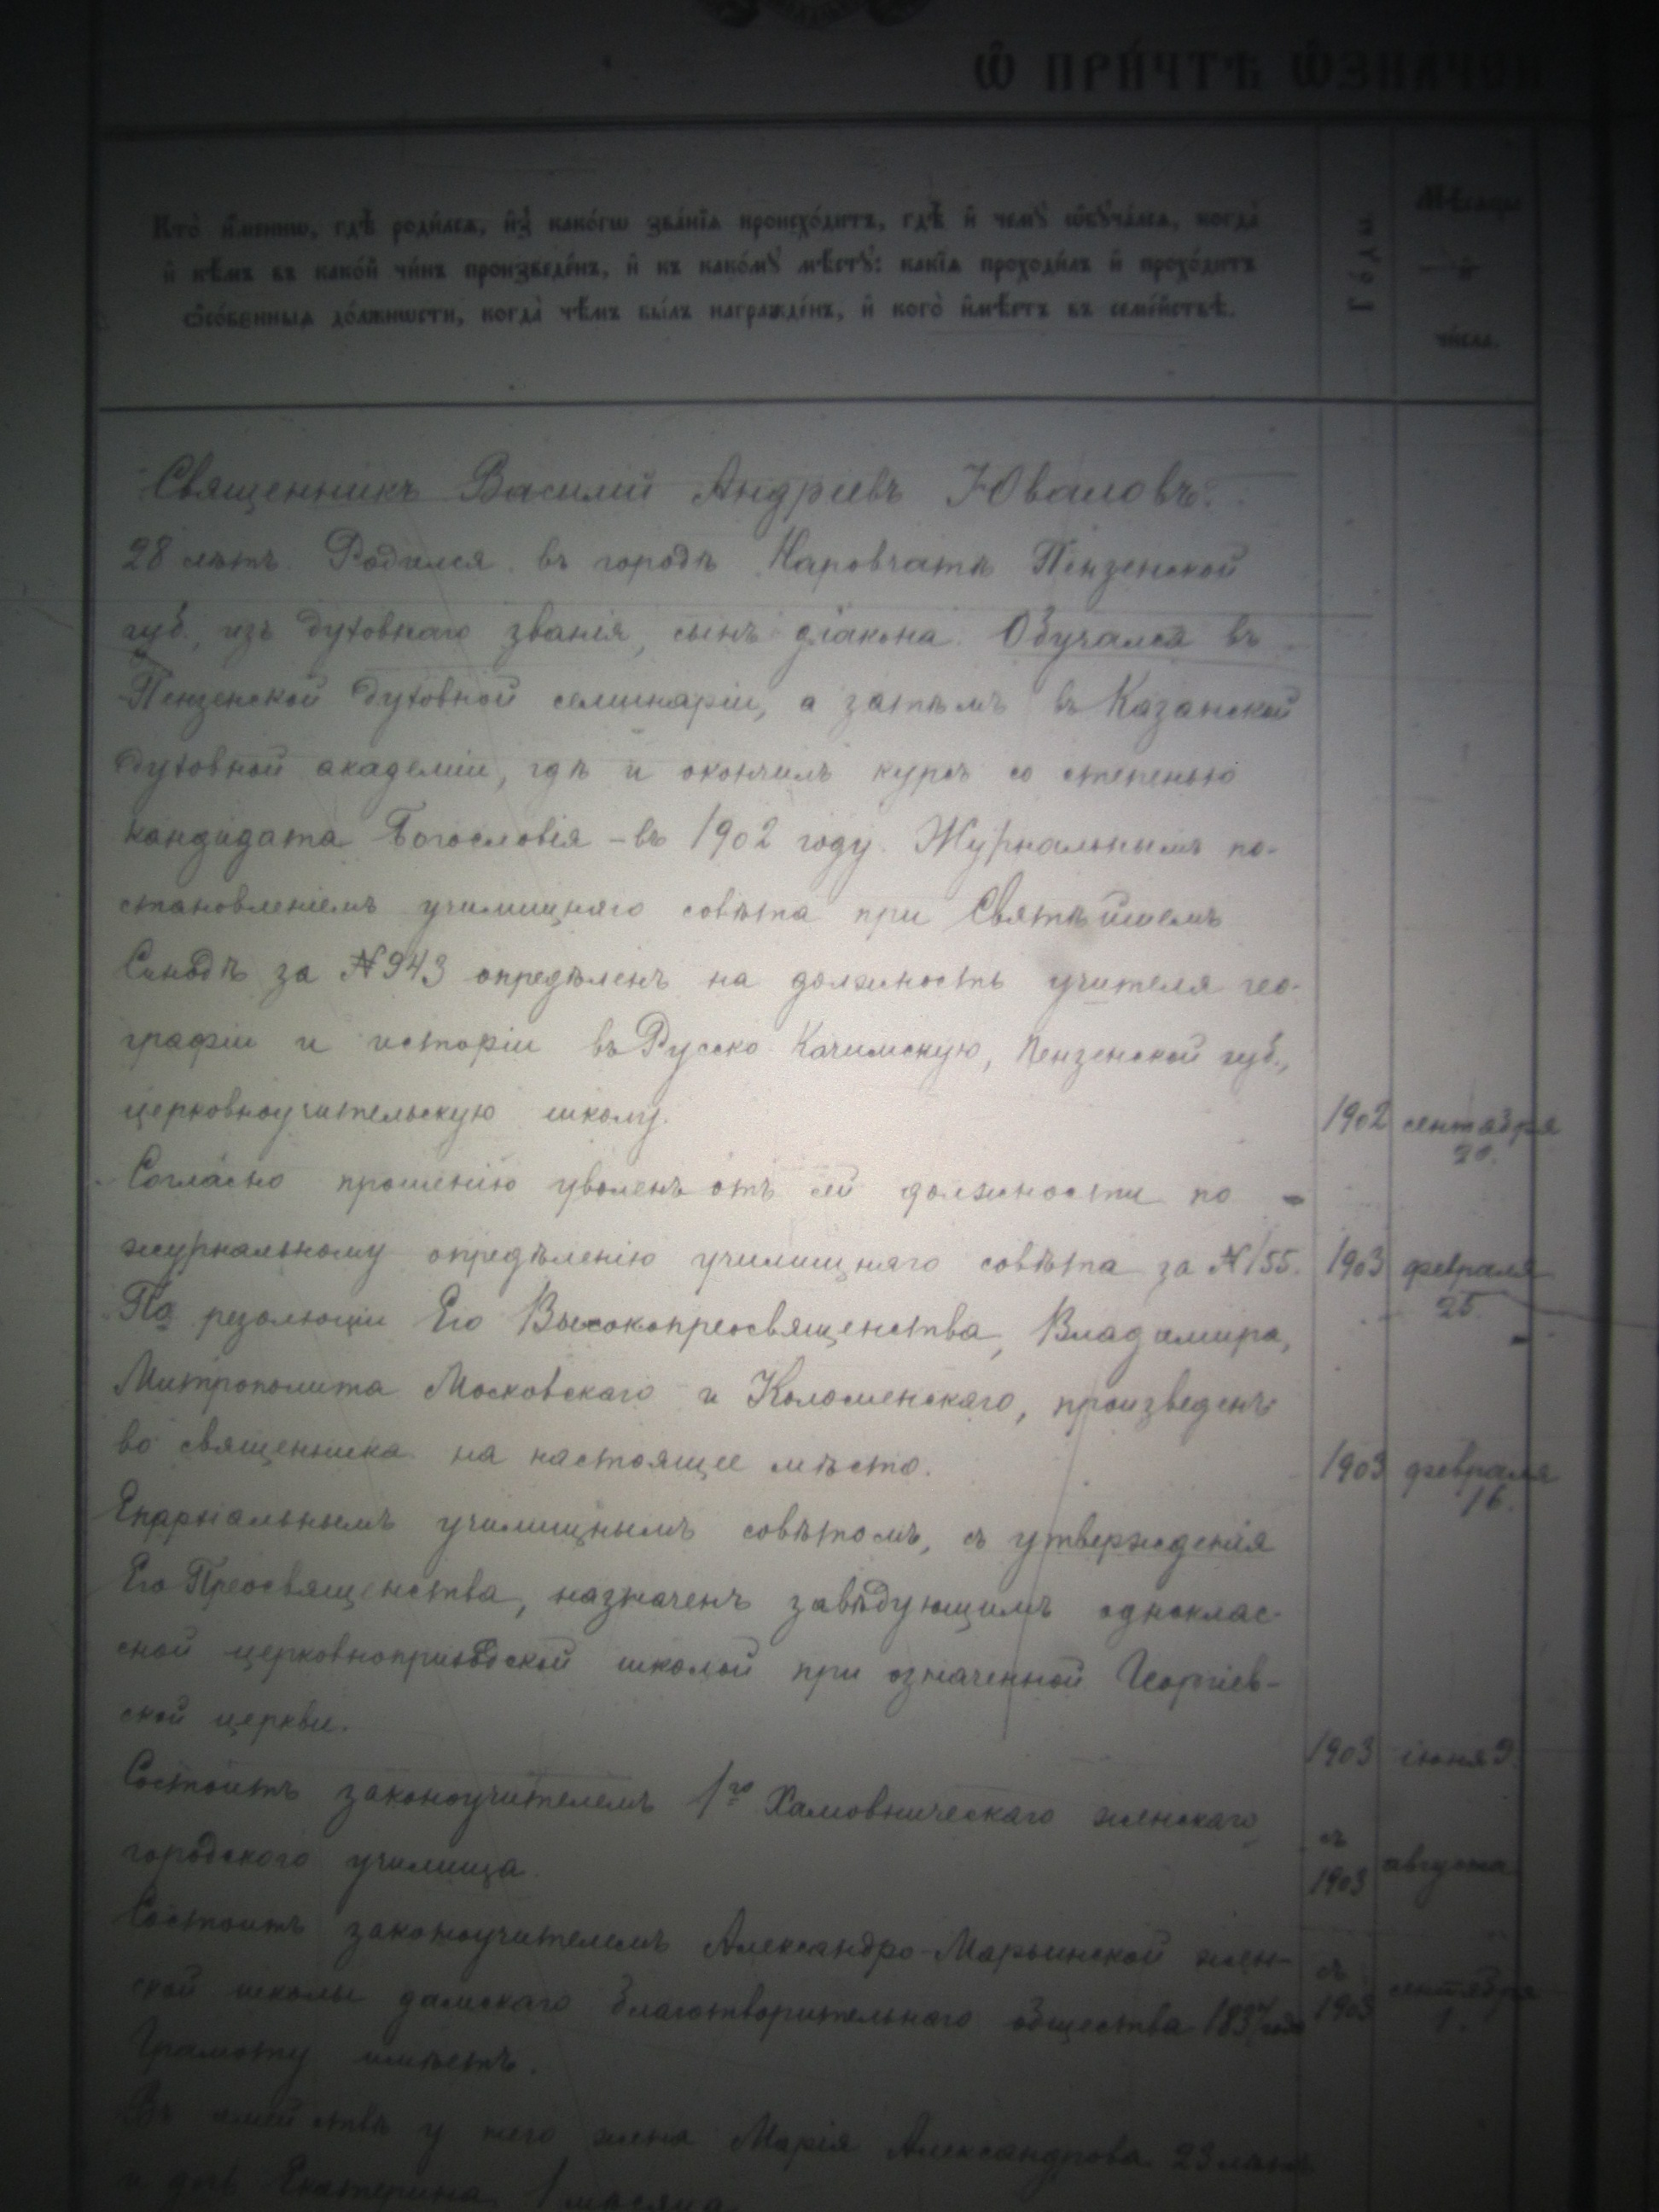 Ѡ҆ ПРИ́ЧТѢ Ѡ҆ЗНАЧЕН
Кто̀ и҆́менно, гдѣ̀ роди́лсѧ, и҆з̾ како́гѡ зва́нїѧ происхо́дитъ, гдѣ̀ и҆ чемꙋ̀ ѡ҆бꙋча́лсѧ, когда̀
и҆ кѣ́мъ въ како́й чи́нъ произведе́нъ, и҆ къ како́мꙋ мѣ́стꙋ: какі̑ѧ проходи́лъ и҆ прохо́дитъ
ѻ҆со́бенныѧ до́лжнѡсти, когда̀ чѣ́мъ бы́лъ награжде́нъ, и҆ кого̀ и҆мѣ́етъ въ семе́йствѣ.
Го́ды
Мѣ́сѧцы
и҆
чи́сла.
Священникъ Василій Андреевъ Юваловъ.
28 лѣтъ. Родился въ городѣ Наровчатѣ Пензенской
губ., изъ духовнаго званія, сынъ діакона. Обучался въ
Пензенской духовной семинаріи, а затѣмъ въ Казанской
духовной академіи, гдѣ и окончилъ курсъ со степенью
кандидата Богословія – въ 1902 году. Журнальнымъ по-
становленіемъ училищнаго совѣта при Святѣйшемъ
Синодѣ за №943 опредѣленъ на должность учителя гео-
графіи и исторіи въ Русско-Качимскую, Пензенской губ.,
церковноучительскую школу. 1902 сентября
20.
Согласно прошенію уволенъ отъ сей должности по
журнальному опредѣленію училищнаго совѣта за №155. 1903 февраля
25.
По резолюціи Его Высокопреосвященства, Владимира,
Митрополита Московскаго и Коломенскаго, произведенъ
во священника на настоящее мѣсто. 1903 февраля
16.
Епархіальнымъ училищнымъ совѣтомъ, съ утвержденія
Его Преосвященства, назначенъ завѣдующимъ одноклас-
сной церковноприходской школой при означенной Георгіев-
ской церкви. 1903 іюня 9.
Состоитъ законоучителемъ 1го Хамовническаго женскаго
городского училища. съ 1903 августа
Состоитъ законоучителемъ Александро-Марьинской жен-
ской школы дамскаго благотворительнаго общества съ 1903 сентября
1.
Грамоту имѣетъ.
Въ семействѣ у него жена Марія Александрова 23 лѣтъ
и дочь Екатерина 1 мѣсяца